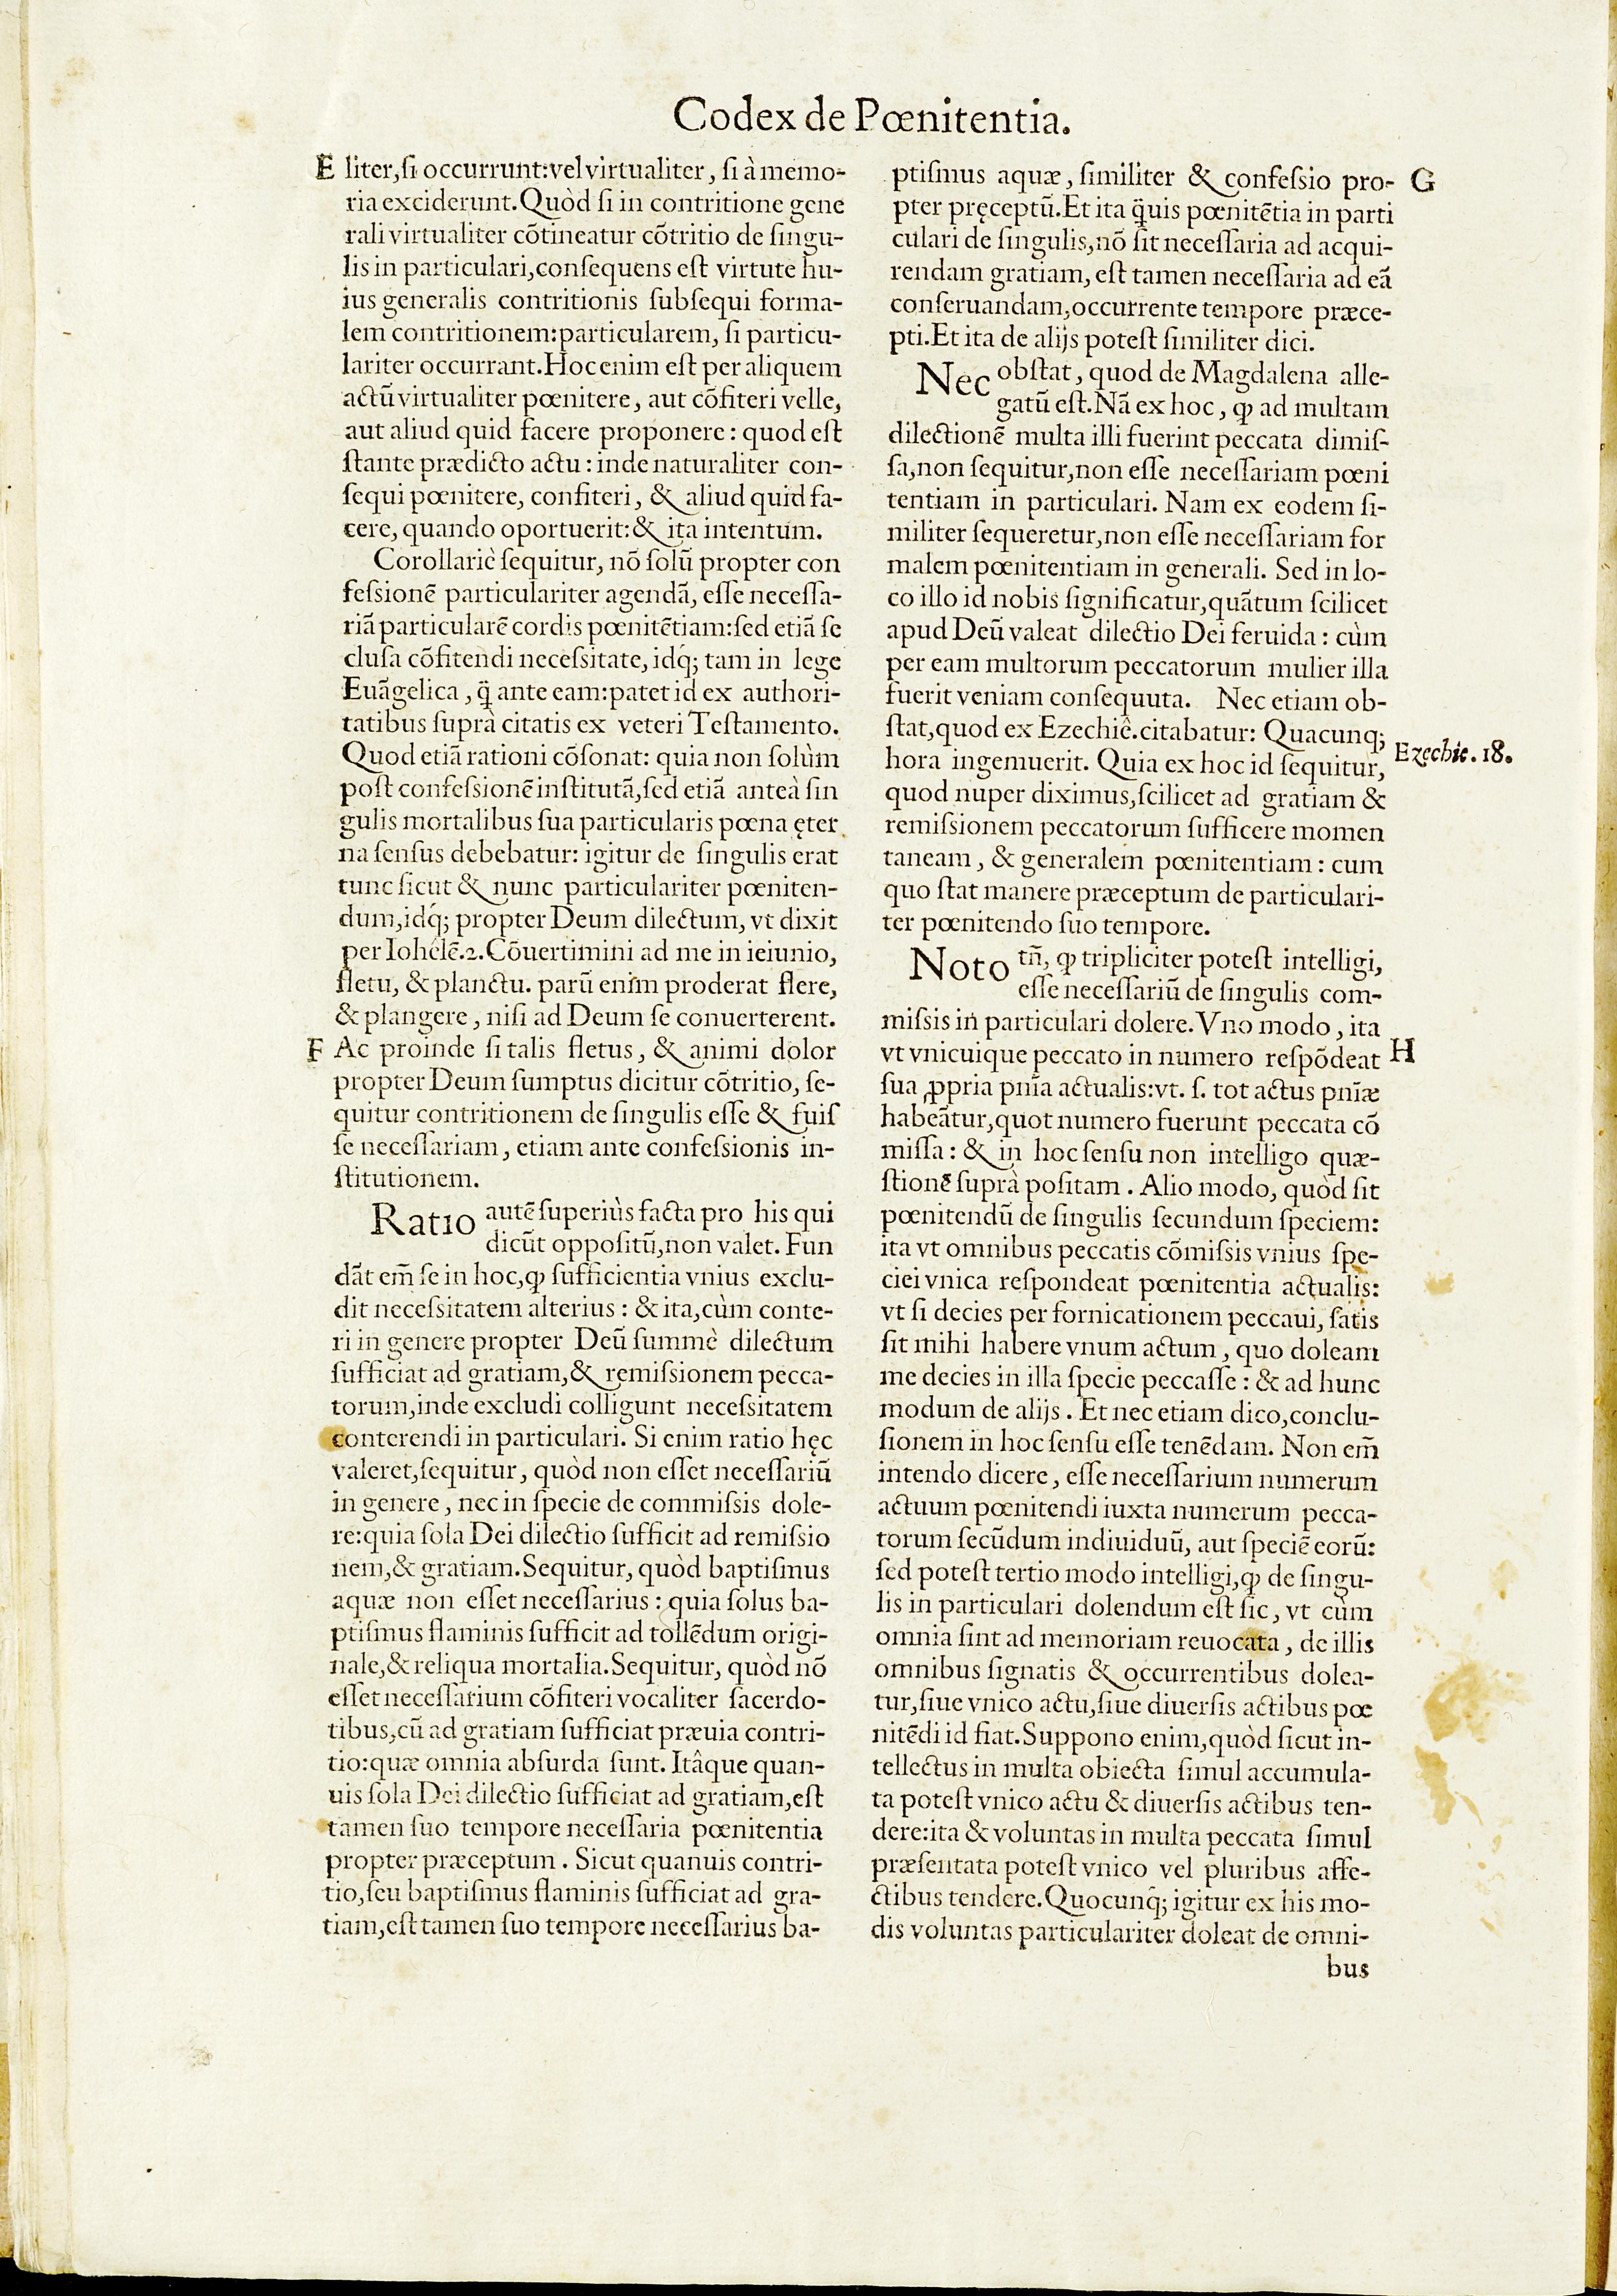 Codex de Pœnitentia.
E liter, ſi occurrunt: vel virtualiter, ſi à memo-
ria exciderunt. Quòd ſi in contritione gene
rali virtualiter cõtineatur cõtritio de ſingu-
lis in particulari, conſequens eſt virtute hu-
ius generalis contritionis ſubſequi forma-
lem contritionem: particularem, ſi particu-
lariter occurrant. Hoc enim eſt per aliquem
actũ virtualiter pœnitere, aut cõfiteri velle,
aut aliud quid facere proponere: quod eſt
ſtante prædicto actu: inde naturaliter con-
ſequi pœnitere, confiteri, & aliud quid fa-
cere, quando oportuerit: & ita intentum.
Corollariè ſequitur, nõ ſolũ propter con
feſsionẽ particulariter agendã, eſſe neceſſa-
riã particularẽ cordis pœnitẽtiam: ſed etiã ſe
cluſa cõfitendi neceſsitate, idq́; tam in lege
Euãgelica, q̃ ante eam: patet id ex authori-
tatibus ſuprà citatis ex veteri Teſtamento.
Quod etiã rationi cõſonat: quia non ſolùm
poſt confeſsionẽ inſtitutã, ſed etiã anteà ſin
gulis mortalibus ſua particularis pœna ęter
na ſenſus debebatur: igitur de ſingulis erat
tunc ſicut & nunc particulariter pœniten-
dum, idq́; propter Deum dilectum, vt dixit
per Iohelẽ. 2. Cõuertimini ad me in ieiunio,
fletu, & planctu. parũ enim proderat flere,
& plangere, niſi ad Deum ſe conuerterent.
F Ac proinde ſi talis fletus, & animi dolor
propter Deum ſumptus dicitur cõtritio, ſe-
quitur contritionem de ſingulis eſſe & fuiſ
ſe neceſſariam, etiam ante confeſsionis in-
ſtitutionem.
Ratio autẽ ſuperiùs facta pro his qui
dicũt oppoſitũ, non valet. Fun
dãt em̃ ſe in hoc, ꝙ ſufficientia vnius exclu-
dit neceſsitatem alterius: & ita, cùm conte-
ri in genere propter Deũ ſummè dilectum
ſufficiat ad gratiam, & remiſsionem pecca-
torum, inde excludi colligunt neceſsitatem
conterendi in particulari. Si enim ratio hęc
valeret, ſequitur, quòd non eſſet neceſſariũ
in genere, nec in ſpecie de commiſsis dole-
re: quia ſola Dei dilectio ſufficit ad remiſsio
nem, & gratiam. Sequitur, quòd baptiſmus
aquæ non eſſet neceſſarius: quia ſolus ba-
ptiſmus flaminis ſufficit ad tollẽdum origi-
nale, & reliqua mortalia. Sequitur, quòd nõ
eſſet neceſſarium cõfiteri vocaliter ſacerdo-
tibus, cũ ad gratiam ſufficiat præuia contri-
tio: quæ omnia abſurda ſunt. Itâque quan-
uis ſola Dei dilectio ſufficiat ad gratiam, eſt
tamen ſuo tempore neceſſaria pœnitentia
propter præceptum. Sicut quanuis contri-
tio, ſeu baptiſmus flaminis ſufficiat ad gra-
tiam, eſt tamen ſuo tempore neceſſarius ba-
ptiſmus aquæ, ſimiliter & confeſsio pro- G
pter pręceptũ. Et ita q̃uis pœnitẽtia in parti
culari de ſingulis, nõ ſit neceſſaria ad acqui-
rendam gratiam, eſt tamen neceſſaria ad eã
conſeruandam, occurrente tempore præce-
pti. Et ita de alijs poteſt ſimiliter dici.
Nec obſtat, quod de Magdalena alle-
gatũ eſt. Nã ex hoc, ꝙ ad multam
dilectionẽ multa illi fuerint peccata dimiſ-
ſa, non ſequitur, non eſſe neceſſariam pœni
tentiam in particulari. Nam ex eodem ſi-
militer ſequeretur, non eſſe neceſſariam for
malem pœnitentiam in generali. Sed in lo-
co illo id nobis ſignificatur, quãtum ſcilicet
apud Deũ valeat dilectio Dei feruida: cùm
per eam multorum peccatorum mulier illa
fuerit veniam conſequuta. Nec etiam ob-
ſtat, quod ex Ezechiê. citabatur: Quacunq;
Ezechie. 18.
hora ingemuerit. Quia ex hoc id ſequitur,
quod nuper diximus, ſcilicet ad gratiam &
remiſsionem peccatorum ſufficere momen
taneam, & generalem pœnitentiam: cum
quo ſtat manere præceptum de particulari-
ter pœnitendo ſuo tempore.
Noto tñ, ꝙ tripliciter poteſt intelligi,
eſſe neceſſariũ de ſingulis com-
miſsis in particulari dolere. Vno modo, ita
vt vnicuique peccato in numero reſpõdeat H
ſua ꝓpria pnĩa actualis: vt. ſ. tot actus pnĩæ
habeãtur, quot numero fuerunt peccata cõ
miſſa: & in hoc ſenſu non intelligo quæ-
ſtionẽ ſuprà poſitam. Alio modo, quòd ſit
pœnitendũ de ſingulis ſecundum ſpeciem:
ita vt omnibus peccatis cõmiſsis vnius ſpe-
ciei vnica reſpondeat pœnitentia actualis:
vt ſi decies per fornicationem peccaui, ſatis
ſit mihi habere vnum actum, quo doleam
me decies in illa ſpecie peccaſſe: & ad hunc
modum de alijs. Et nec etiam dico, conclu-
ſionem in hoc ſenſu eſſe tenẽdam. Non em̃
intendo dicere, eſſe neceſſarium numerum
actuum pœnitendi iuxta numerum pecca-
torum ſecũdum indiuiduũ, aut ſpeciẽ eorũ:
ſed poteſt tertio modo intelligi, ꝙ de ſingu-
lis in particulari dolendum eſt ſic, vt cùm
omnia ſint ad memoriam reuocata, de illis
omnibus ſignatis & occurrentibus dolea-
tur, ſiue vnico actu, ſiue diuerſis actibus pœ
nitẽdi id fiat. Suppono enim, quòd ſicut in-
tellectus in multa obiecta ſimul accumula-
ta poteſt vnico actu & diuerſis actibus ten-
dere: ita & voluntas in multa peccata ſimul
præſentata poteſt vnico vel pluribus affe-
ctibus tendere. Quocunq́; igitur ex his mo-
dis voluntas particulariter doleat de omni-
bus